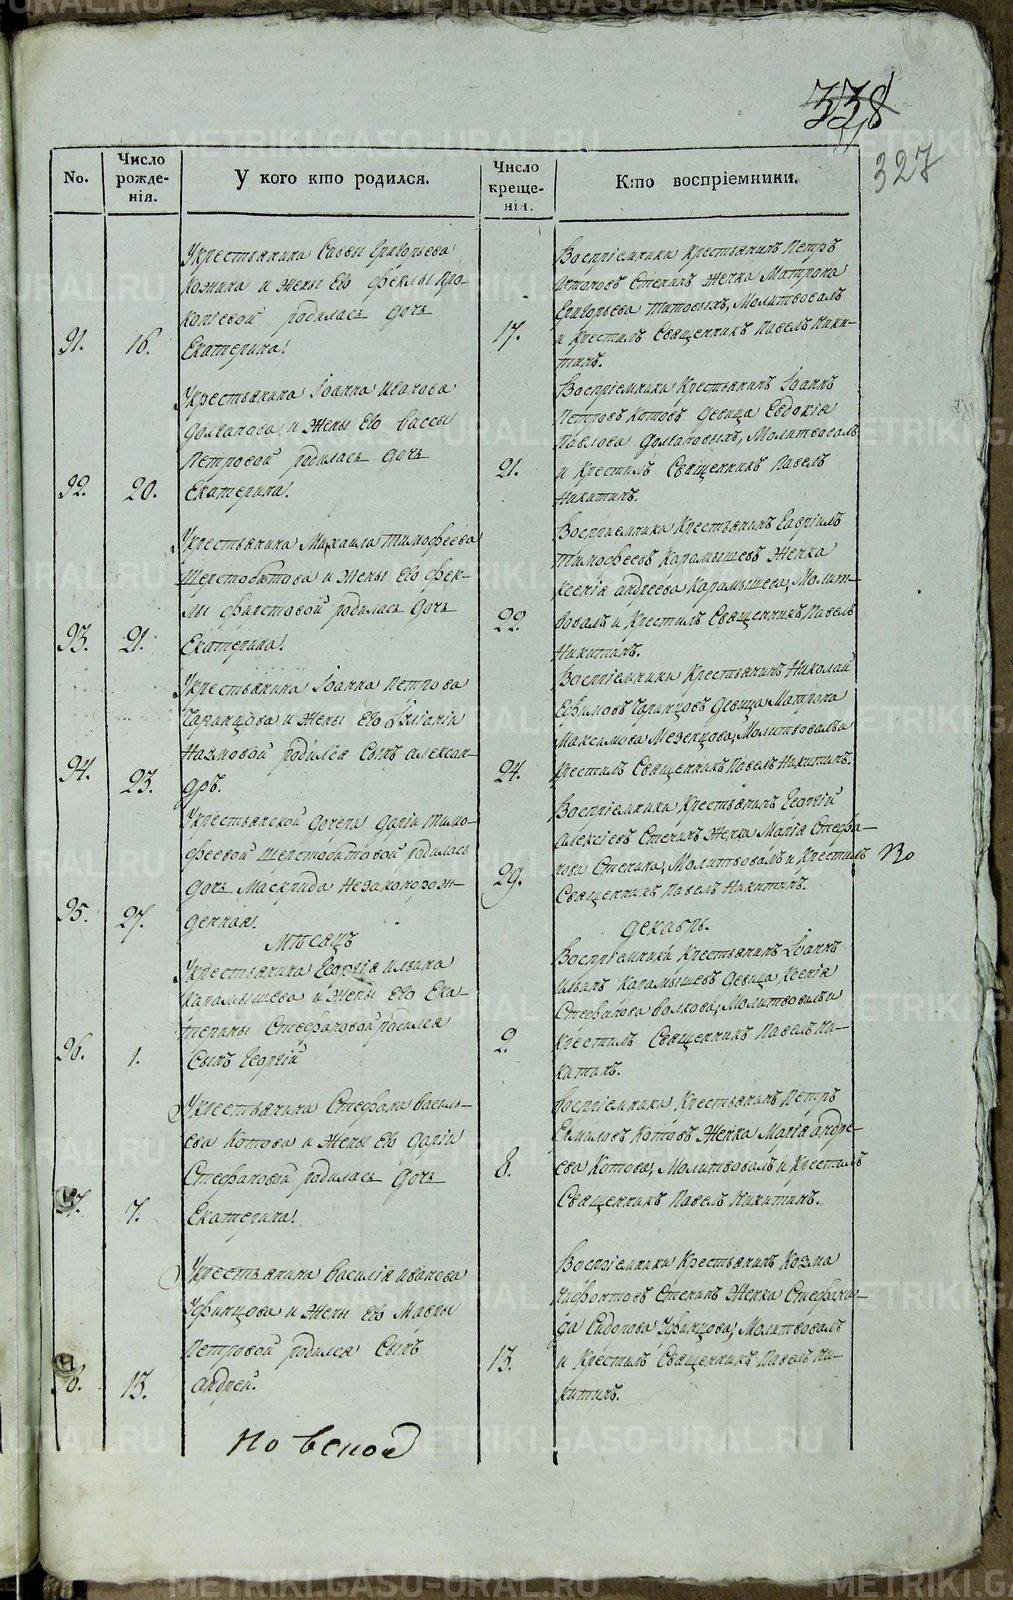 338
327
No.
Число рожде-нія.
У кого кто родился.
Число креще-нія.
Кто воспріемники.
У крестьянина Саввы Григорьева
Кожина и жены его Феклы Про-
копіевой родилась дочь
91. 16. Екатерина!
17.
Воспріемники крестьянинъ Петръ
Стенин женка Матрона
Григорьева Титовыхъ, Молитвовалъ
и крестилъ Священникъ Павелъ Ники-
тинъ.
У крестьянина Іоанна Иванова
Долганова и жены его Вассы
Петровой родилась дочь
92. 20. Екатерина!
21.
Воспріемники крестьянинъ Іоаннъ
Петровъ Котовъ девица Евдокія
Павлова Долгановыхъ, Молитвовалъ
и крестилъ Священникъ Павелъ
Никитинъ.
У крестьянина Михаила Тимофеева
Шерстобитова и жены его Фек-
лы родилась дочь
93. 21. Екатерина!
22.
Воспріемники крестьянинъ Гавріилъ
Тимофеевъ Карамышевъ женка
Ксенія Андреева Карамышева, Молит-
вовалъ и крестилъ Священникъ Павелъ
Никитинъ.
У крестьянина Іоанна Петрова
и жены его
Наумовой родился сынъ Алексан-
94. 23. дръ.
24.
Воспріемники крестьянинъ Николай
Ефимовъ девица Матрона
Максимова Мезенцова, Молитвовалъ и
крестилъ Священникъ Павелъ Никитинъ.
У крестьянской дочери Даріи Тимо-
феевой Шерстобитовой родилась
дочь незаконорож-
95. 27. денная!
29.
Воспріемники крестьянинъ Георгій
Алексіевъ Стенинъ женка Марія Стефа-
нова Стенина, Молитвовалъ и крестилъ
Священникъ Павелъ Никитинъ.
Мѣсяцъ
декабрь.
У крестьянина Георгія Ильина
Карамышева и жены его Ека-
терины Стефановой родился
96. 1. Сынъ Георгій
2.
Воспріемники крестьянинъ Іоаннъ
Ильинъ Карамышевъ девица Ксенія
Стефанова Волкова, Молитвовалъ и
крестилъ Священникъ Павелъ Ни-
китинъ.
У крестьянина Стефана Василь-
ева Котова и жены его Даріи
Стефановой родилась дочь
97. 7. Екатерина!
8.
Воспріемники крестьянинъ Петръ
Ермиловъ Котовъ женка Марія Андре-
ева Котова, Молитвовалъ и крестилъ
Священникъ Павелъ Никитинъ.
У крестьянина Василія Иванова
Уфинцова и жены его Мавры
Петровой родился Сынъ
98. 13. Андрей.
13.
Воспріемники крестьянинъ Козма
Стенинъ женка Стефани-
да Сидорова Уфинцова, Молитвовалъ
и крестилъ Священникъ Павелъ Ни-
китинъ.
METRIKI.GASO-URAL.RU